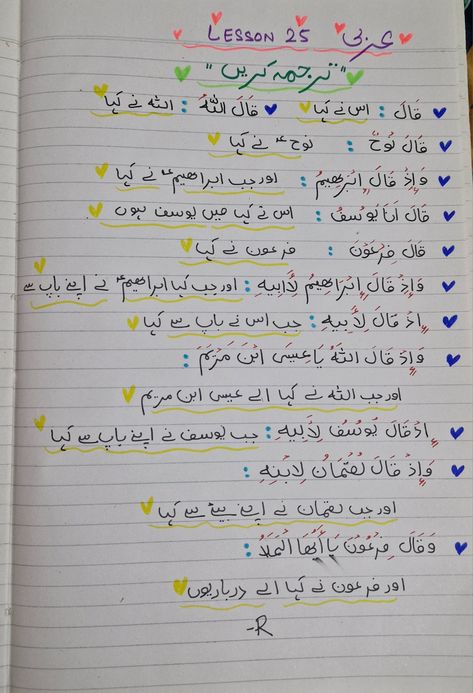 عربی LESSON 25
"ترجمہ کریں"
قَالَ : اس نے کہا قَالَ اللّٰهُ : اللہ نے کہا
قَالَ نُوحٌ : نوحؑ نے کہا
وَإِذْ قَالَ إِبْرَاهِيمُ : اور جب ابراھیمؑ نے کہا
قَالَ أَنَا يُوسُفُ : اس نے کہا میں یوسف ہوں
قَالَ فِرْعَوْنَ : فرعون نے کہا
وَإِذْ قَالَ إِبْرَاهِيمُ لِأَبِيهِ : اور جب کہا ابراھیمؑ نے اپنے باپ سے
إِذْ قَالَ لِأَبِيهِ : جب اس نے باپ سے کہا
وَإِذْ قَالَ اللّٰهُ يَا عِيسَى ابْنَ مَرْيَمَ :
اور جب اللہ نے کہا اے عیسی ابن مریم
إِذْ قَالَ يُوسُفُ لِأَبِيهِ : جب یوسف نے اپنے باپ سے کہا
وَإِذْ قَالَ لُقْمَانُ لِابْنِهِ :
اور جب لقمان نے اپنے بیٹے سے کہا
وَقَالَ فِرْعَوْنَ يَا أَيُّهَا الْمَلَأُ :
اور فرعون نے کہا اے درباریوں
-R